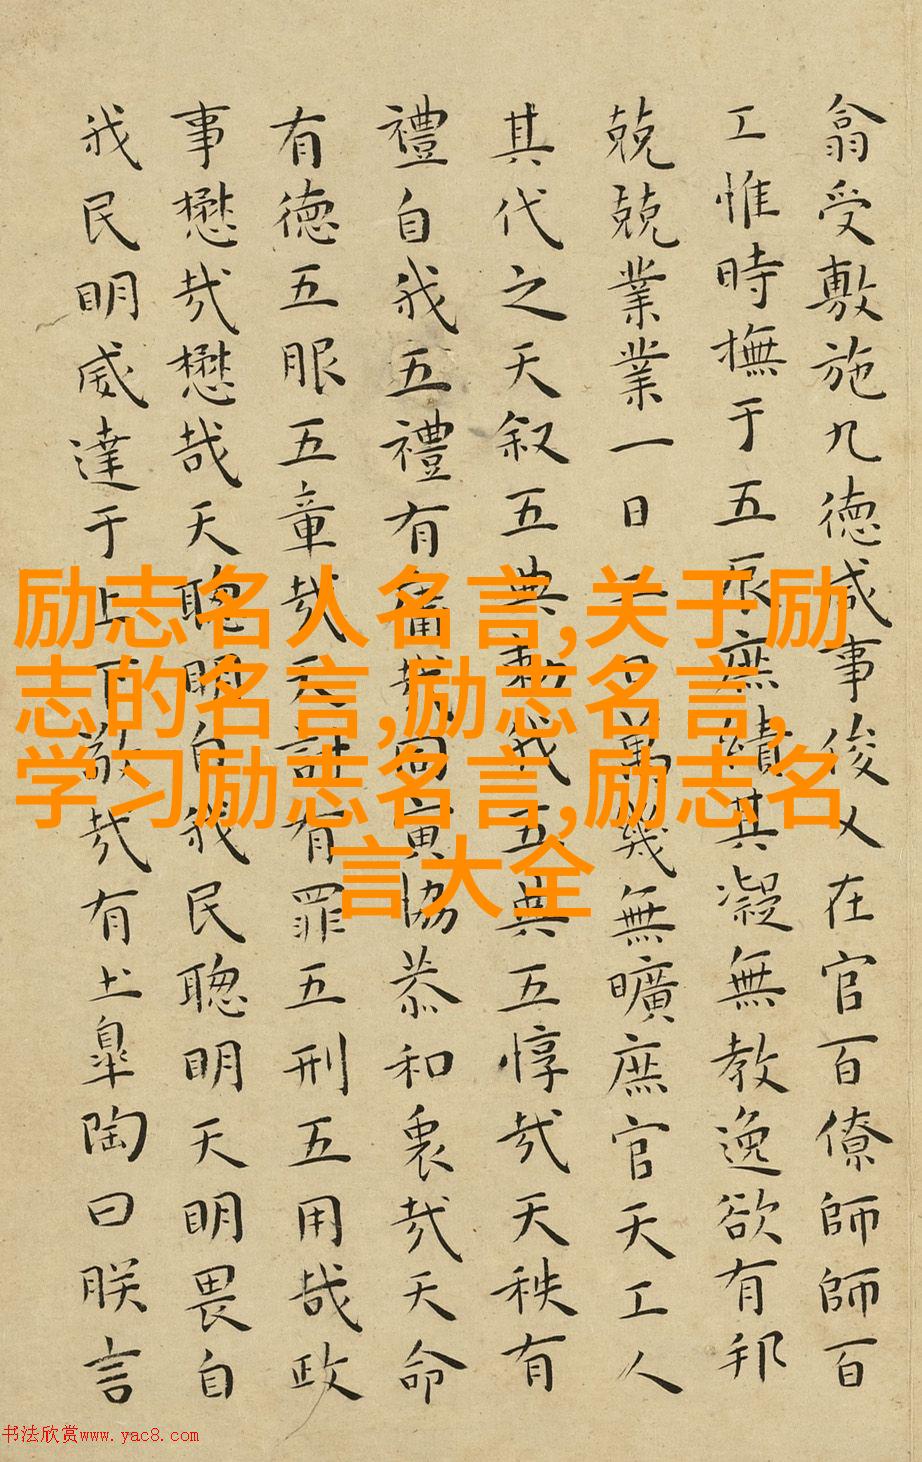 翕受敷施九德咸事俊乂在官百僚師師百
工惟時撫于五辰庶績其凝無教逸欲有邦
兢兢業業一日二日萬幾無曠庶官天工人
其代之天叙五典勑我五典五惇哉天秩有
禮自我五禮有庸哉同寅協恭和衷哉天命
有德五服五章哉天討有罪五刑五用哉政
事懋哉懋哉天聰明自我民聰明天明畏自
我民明威達于上下敬哉有土皐陶曰朕言
励志名人名言,关于励
志的名言,励志名言,
学习励志名言,励志名
言大全
书法欣赏www.yac8.com